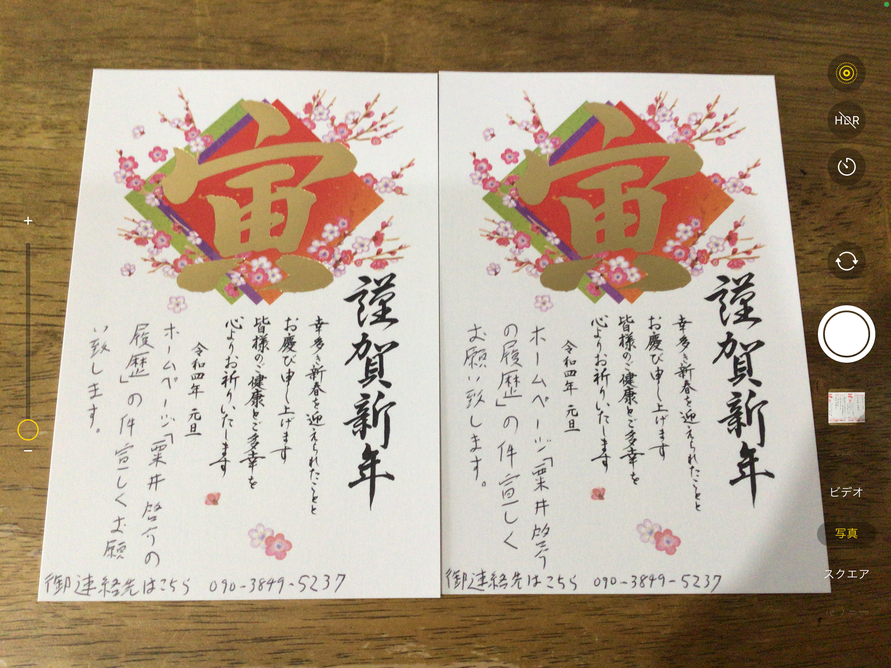 寅
謹賀新年
幸多き新春を迎えられたことと
お慶び申し上げます
皆様のご健康とご多幸を
心よりお祈りいたします
令和四年 元旦
ホームページ「粟井啓介の
履歴」の件宜しくお願
い致します。
御連絡先はこちら 090-3849-5237
寅
謹賀新年
幸多き新春を迎えられたことと
お慶び申し上げます
皆様のご健康とご多幸を
心よりお祈りいたします
令和四年 元旦
ホームページ「粟井啓介
の履歴」の件宜しく
お願い致します。
御連絡先はこちら 090-3849-5237
HDR
ビデオ
写真
スクエア